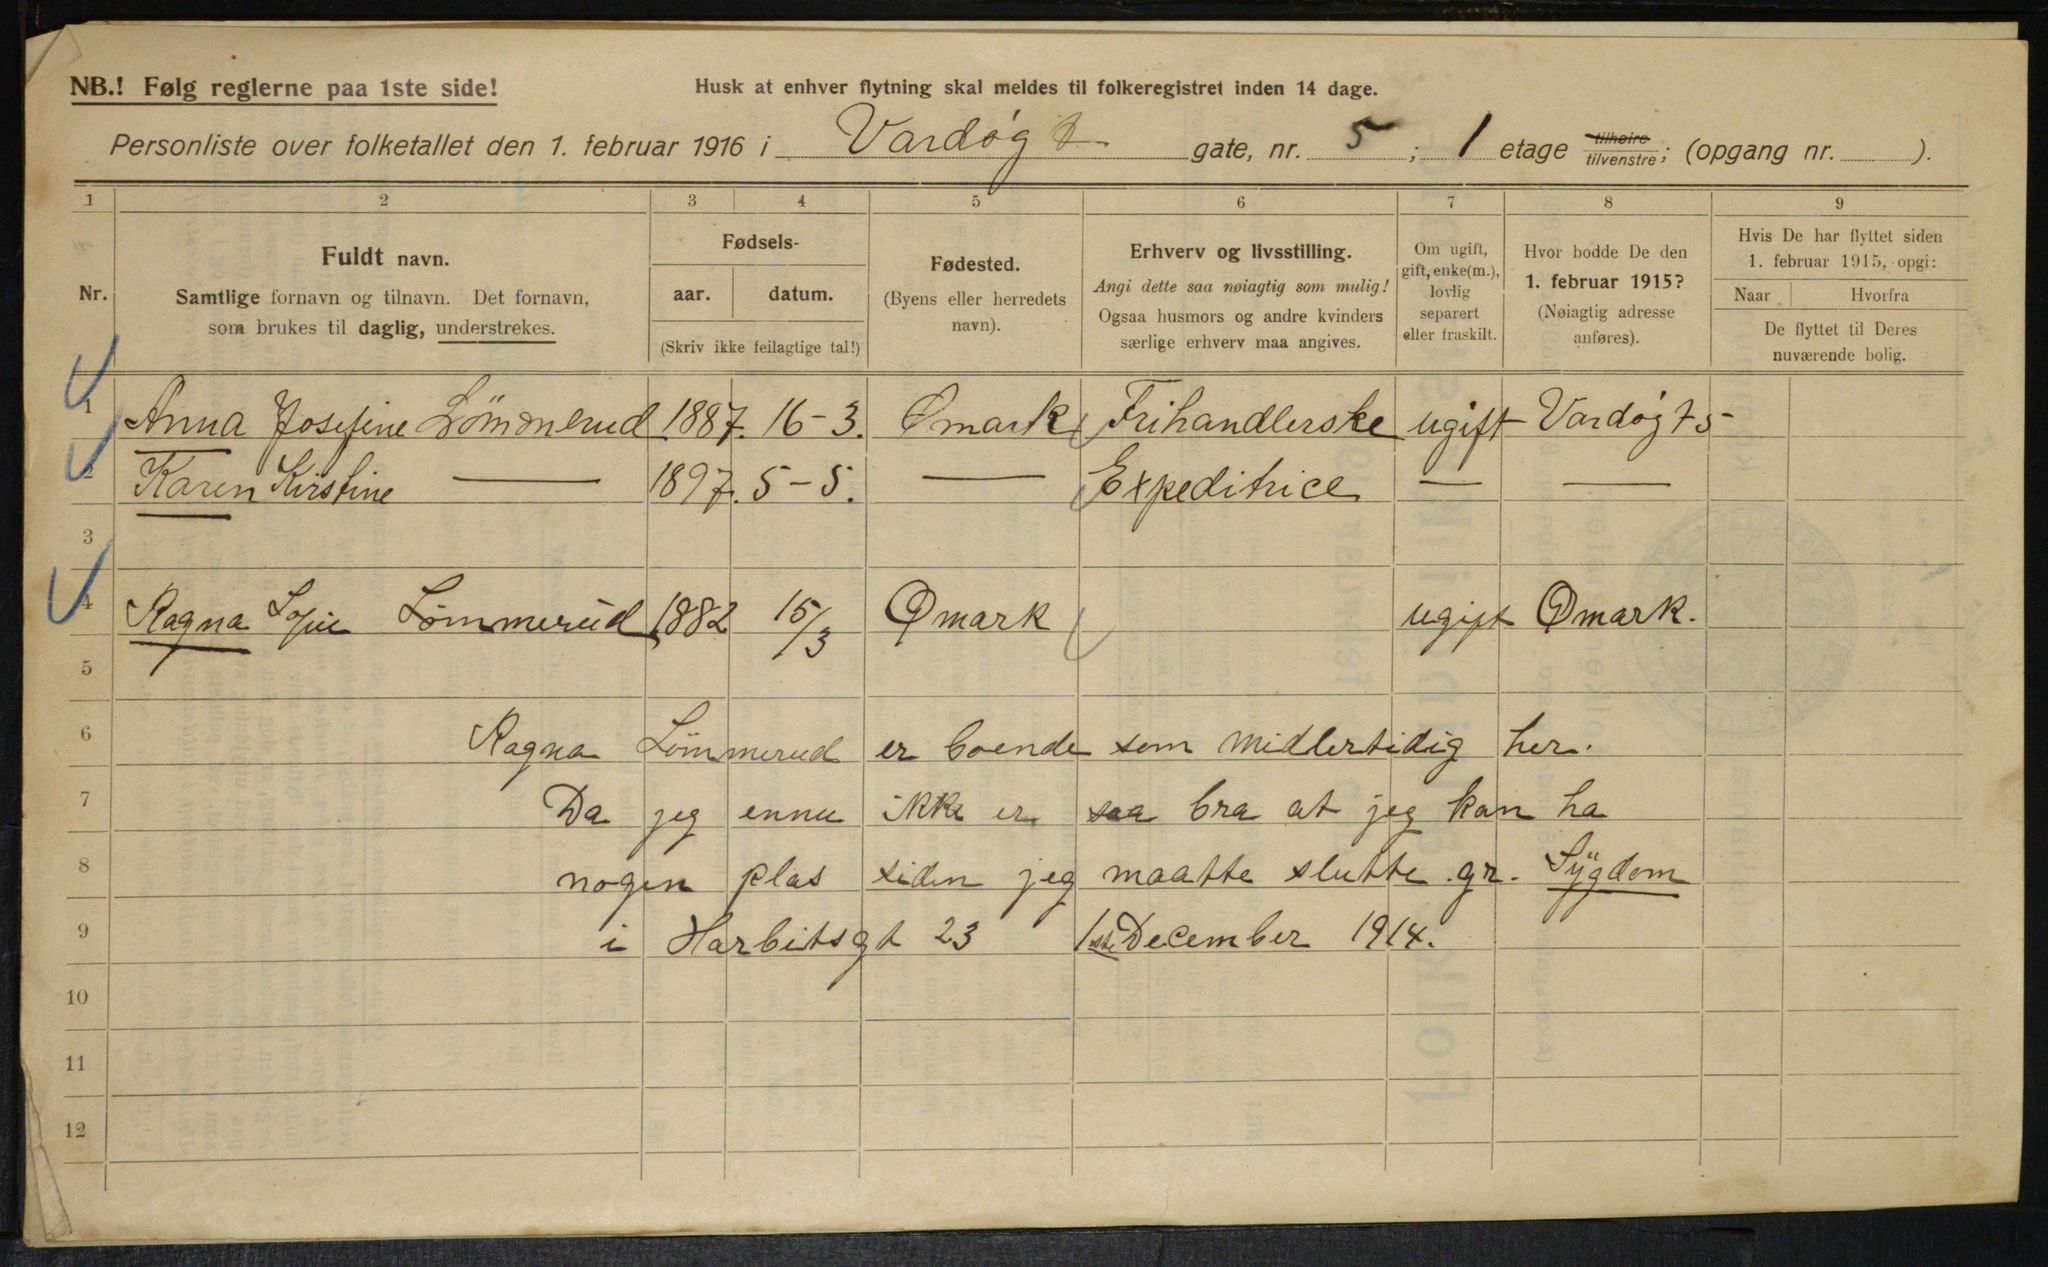 NB.! Følg reglerne paa 1ste side!
Husk at enhver flytning skal meldes til folkeregistret inden 14 dage.
Personliste over folketallet den 1. februar 1916 i Vardøgt gate, nr. 5 ; 1 etage tilhøire tilvenstre; (opgang nr. ).
1 2 3 4 5 6 7 8 9
Nr.
Fuldt navn.
Samtlige fornavn og tilnavn. Det fornavn,
som brukes til daglig, understrekes.
Fødsels-
aar. datum.
(Skriv ikke feilagtige tal!)
Fødested.
(Byens eller herredets
navn).
Erhverv og livsstilling.
Angi dette saa nøiagtig som mulig!
Ogsaa husmors og andre kvinders
særlige erhverv maa angives.
Om ugift,
gift, enke(m.),
lovlig
separert
eller fraskilt.
Hvor bodde De den
1. februar 1915?
(Nøiagtig adresse
anføres).
Hvis De har flyttet siden
1. februar 1915, opgi:
Naar Hvorfra
De flyttet til Deres
nuværende bolig.
1 Anna Josefine Lömmerud 1887. 16-3. Ømark Frihandlerske ugift Vardøgt 5
2 Karen Kirstine — 1897. 5-5. — Expeditrice — —
3
4 Ragna Sofie Lømmerud 1882 15/3 Ømark ugift Ømark.
5
6 Ragna Lømmerud er boende som midlertidig her.
7 Da jeg ennu ikke er saa bra at jeg kan ha
8 nogen plas siden jeg maatte slutte gr. Sÿgdom
9 i Harbitsgt 23 1ste December 1914.
10
11
12